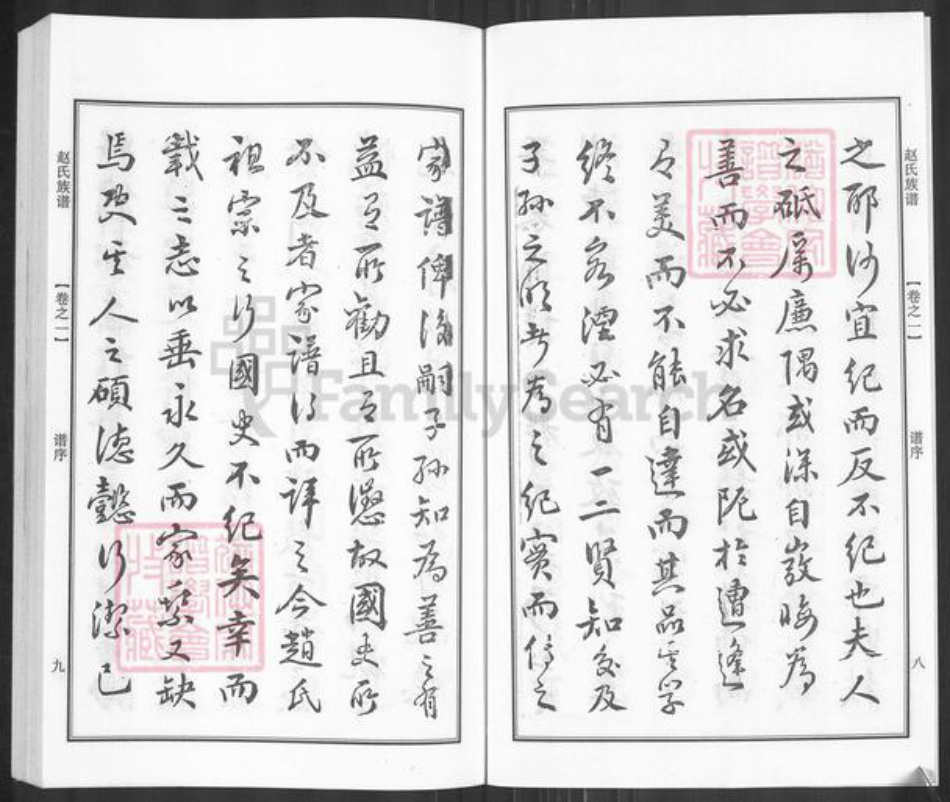 赵氏族谱
【卷之一】
谱序
八
之耶何宜纪而反不纪也夫人
之砥厲廉隅或深自嚴晦為
善而不必求名或阨於遭逢
之美而不能自達而其品其学
终不容湮必有一二賢知交及
子孙之能者為之纪實而传之
家谱俾後嗣子孙知為善之有
益有所勸且有所懲故國史所
不及者家谱得而詳之今趙氏
祖宗之行國史不纪矣幸而
载之志以垂永久而家乘又缺
焉使其人之碩德懿行潔己
赵氏族谱
【卷之一】
谱序
九
FamilySearch